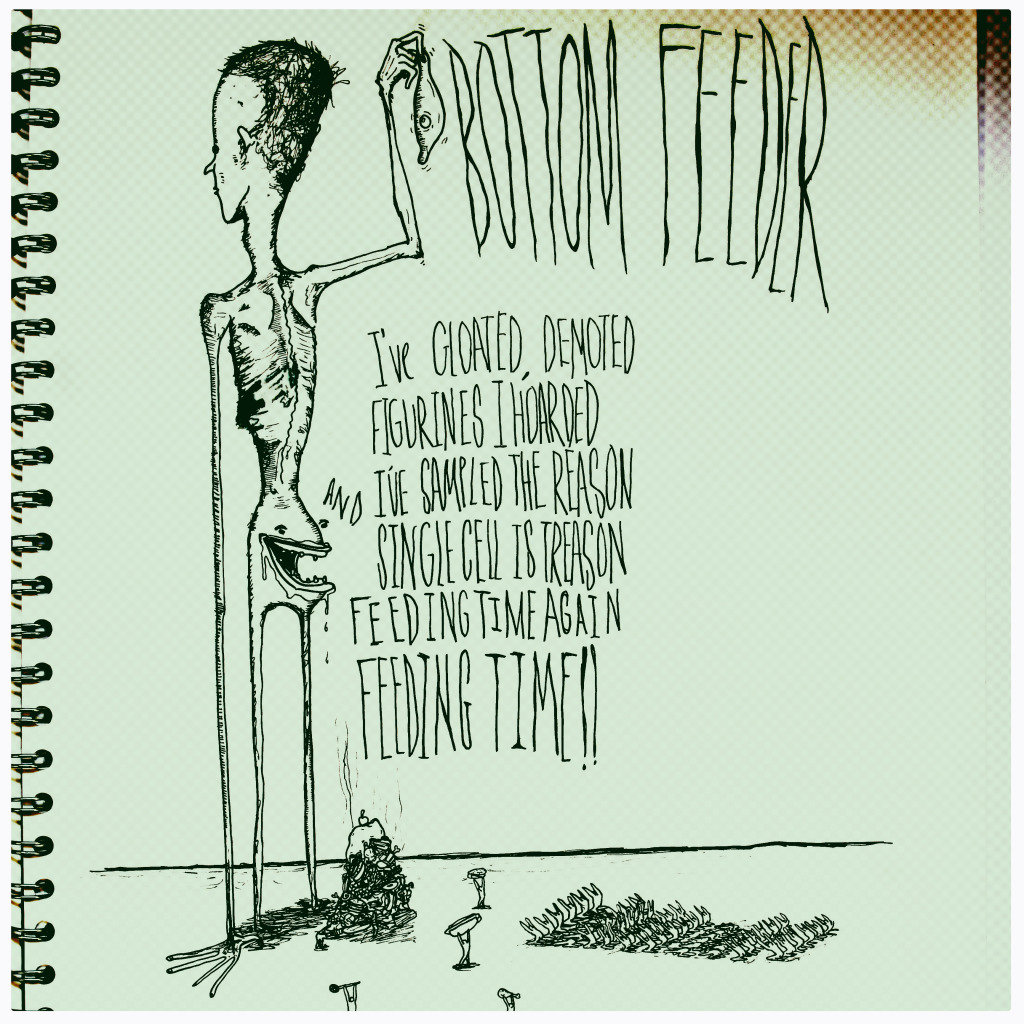 BOTTOM FEEDER
I've GLOATED, DEMOTED
FIGURINES I HOARDED
AND I'VE SAMPLED THE REASON
SINGLE CELL IS TREASON
FEEDING TIME AGAIN
FEEDING TIME!!